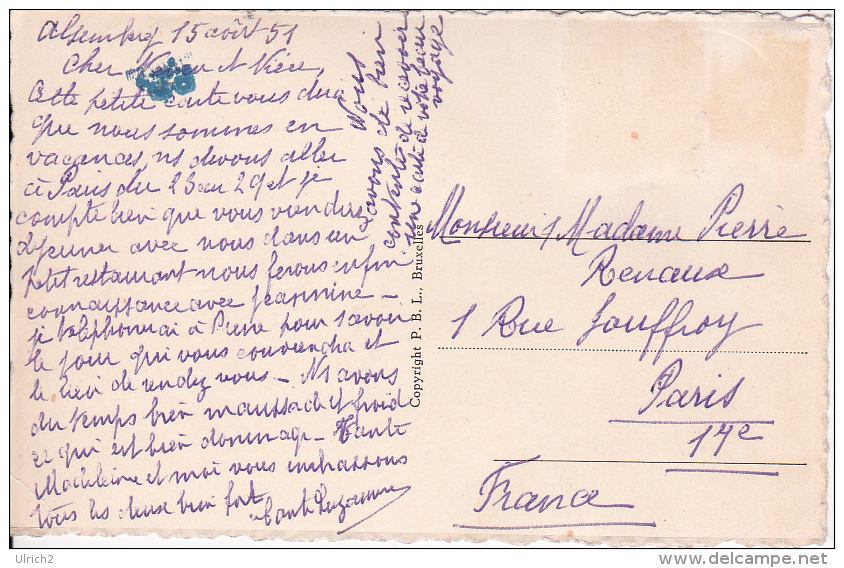 Alsemberg 15 août 51
Cher Neveu et Nièce,
Cette petite carte vous dira
que nous sommes en
vacances, ns devons aller
à Paris du 23 au 29 et je
compte bien que vous viendrez
déjeuner avec nous dans un
petit restaurant nous ferons enfin
connaissance avec Jeannine -
je téléphonerai à Pierre pour savoir
le jour qui vous conviendra et
le lieu de rendez vous - Ns avons
du temps bien maussade et froid
ce qui est bien dommage - Tante
Madeleine et moi vous embrassons
tous les deux bien fort
Tante Suzanne
Nous
avons été bien
contentes de recevoir
une carte de votre beau
voyage
Copyright P. B. L., Bruxelles
Monsieur / Madame Pierre
Renaux
1 Rue Jouffroy
Paris
17e
France
Ulrich2
delcampe.net